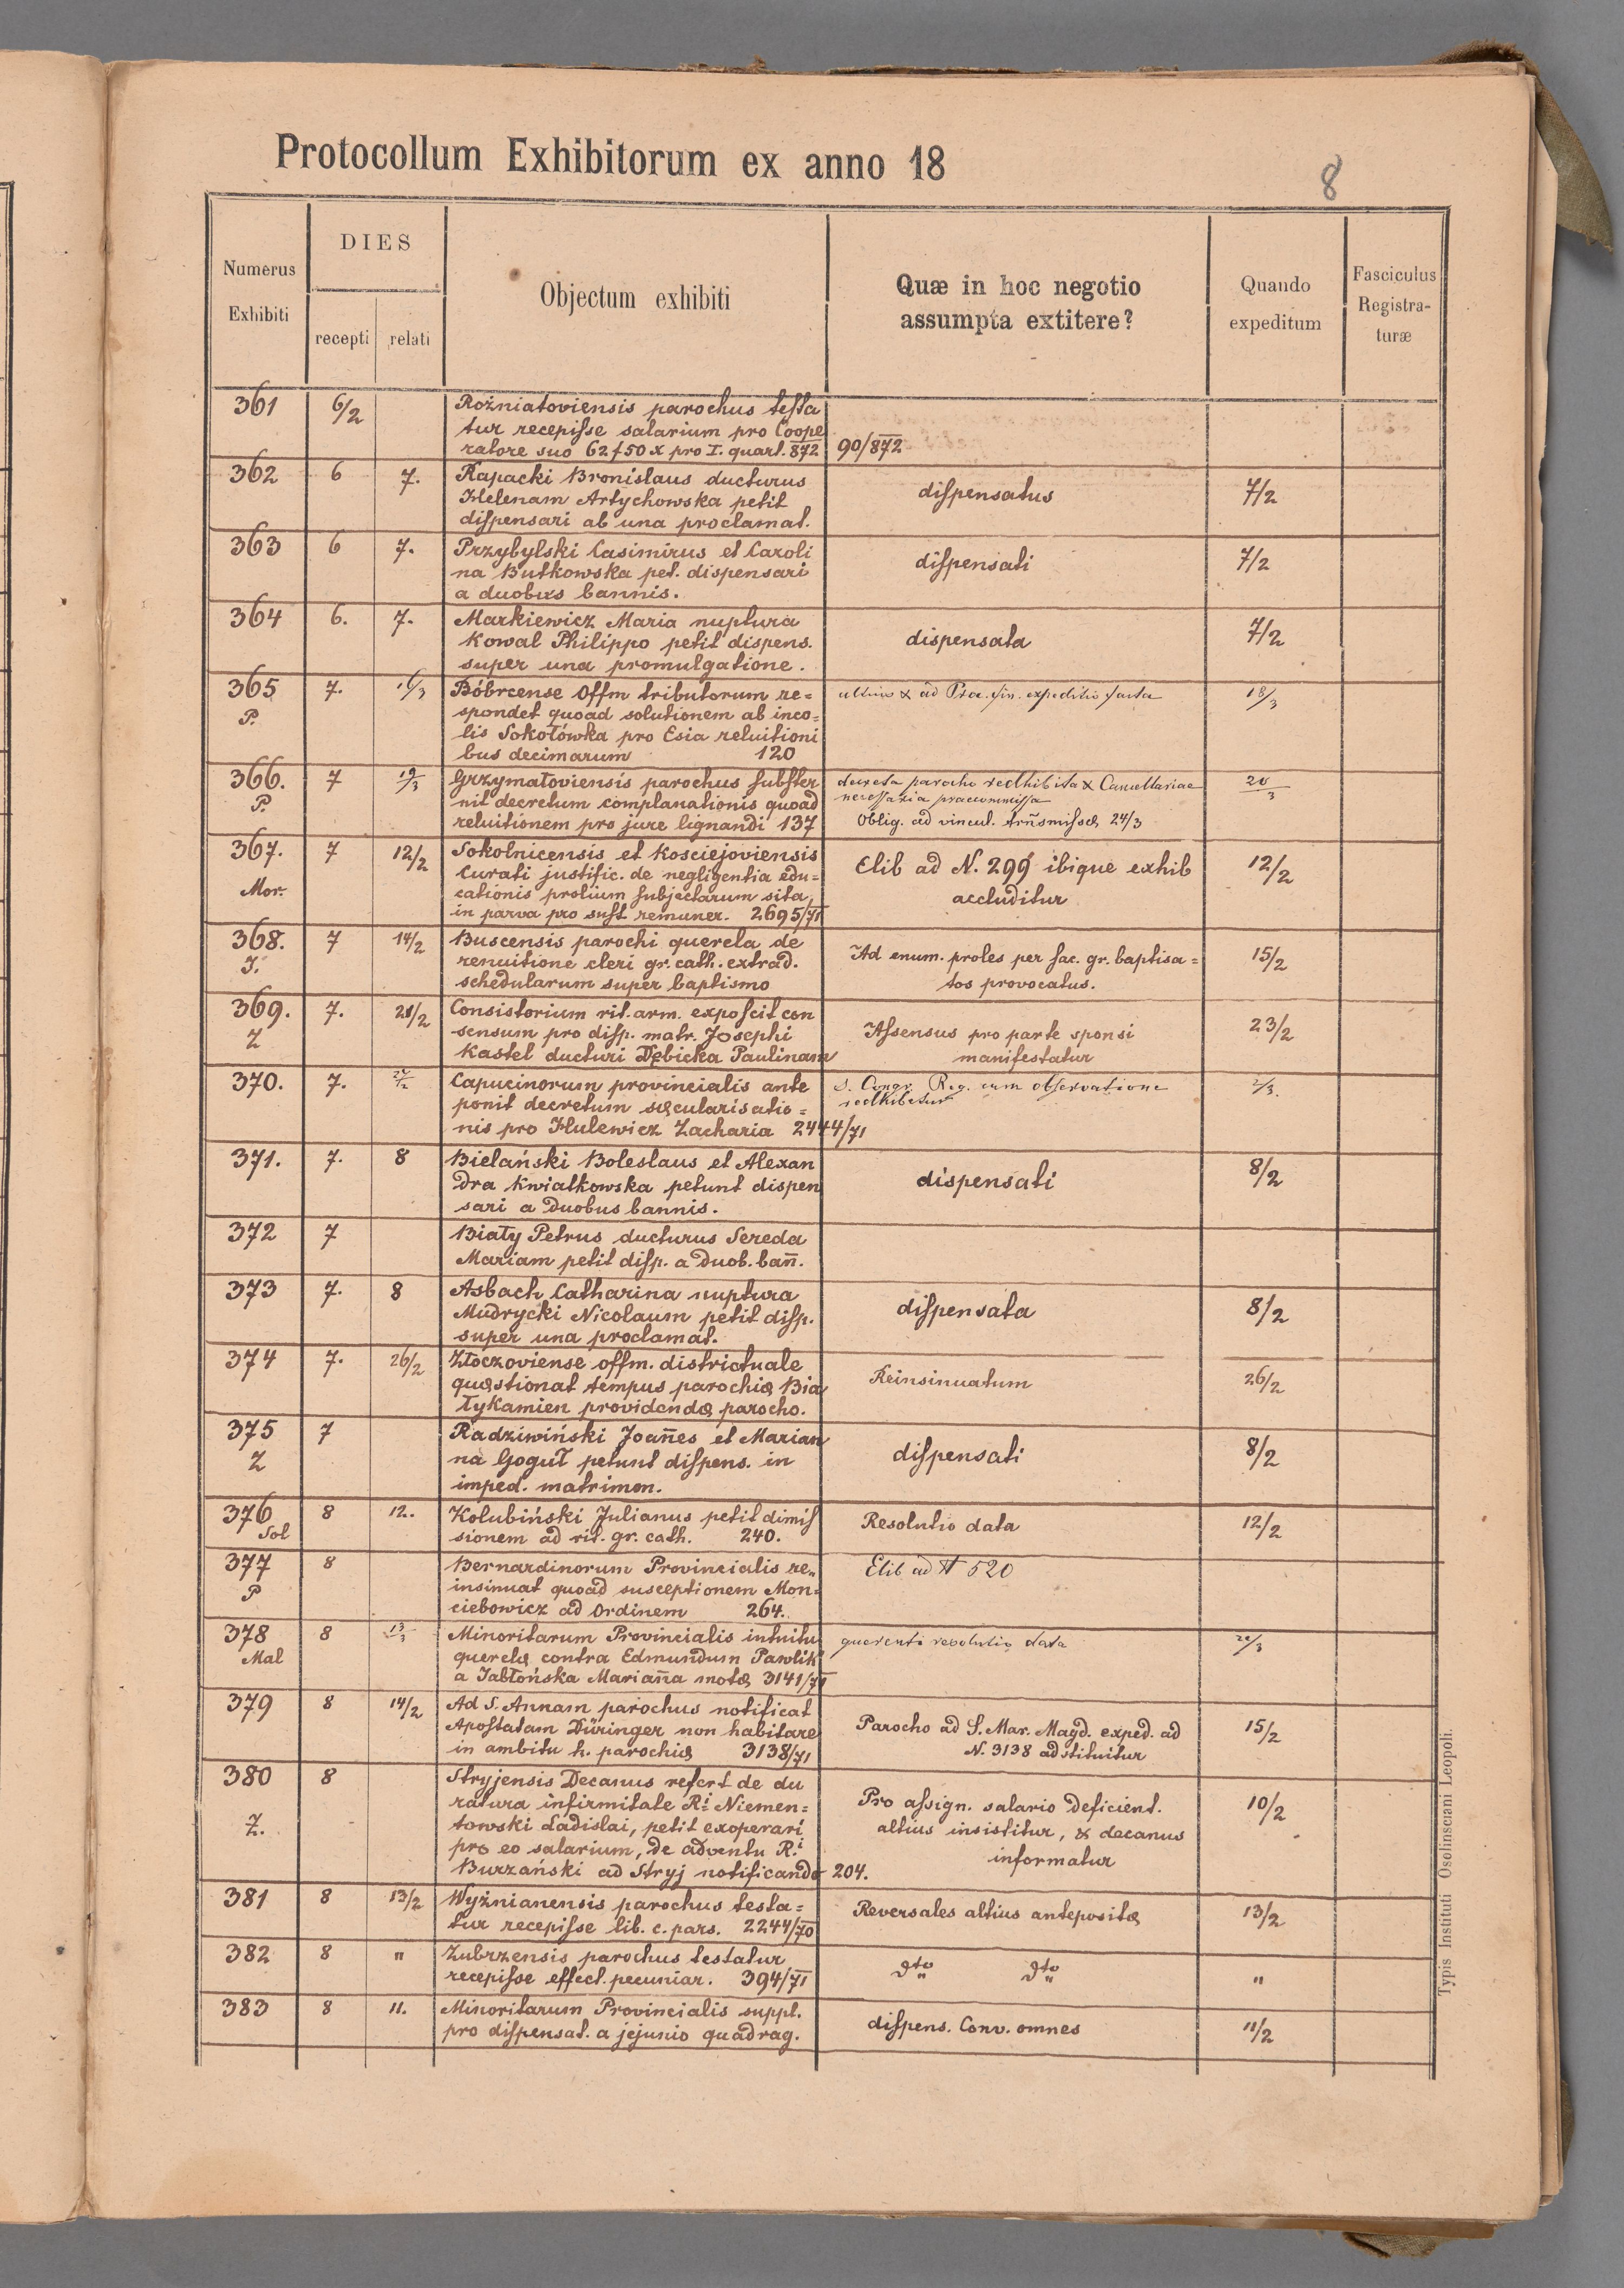 Protocollum Exhibitorum ex anno 18
8
Numerus Exhibiti
DIES
recepti
relati
Objectum exhibiti
Quæ in hoc negotio assumpta extitere?
Quando expeditum
Fasciculus Registra-turæ
361 6/2 Rożniatoviensis parochus testa
tur recepisse salarium pro Coope
ratore suo 62 f 50 x pro I. quart. 872 90/872
362 6 7. Rapacki Bronislaus ducturus
Helenam Artychowska petit dispensatus 7/2
dispensari ab una proclamat.
363 6 7. Przybylski Casimirus et Caroli
na Butkowska pet. dispensari dispensati 7/2
a duobus bannis.
364 6. 7. Markiewicz Maria nuptura
Kowal Philippo petit dispens. dispensata 7/2
super una promulgatione.
365 7. 16/3 Bóbrcense Offm tributorum re= 18/3
P. spondet quoad solutionem ab inco=
lis Sokołówka pro Esia reluitioni
bus decimarum 120
366. 7 19/3 Grzymałoviensis parochus subster decreta parocho redhibita & Cancellariae 20/3
P. nit decretum complanationis quoad necessaria praecommissa
reluitionem pro jure lignandi 137 Oblig. ad vincul. trñsmissæ 24/3
367. 7 12/2 Sokolnicensis et Kosciejoviensis
Mor. Curati justific. de negligentia edu= Elib ad N. 299 ibique exhib 12/2
cationis prolium subjectarum sita accluditur
in parva pro sust remuner. 2695/71
368. 7 14/2 Buscensis parochi querela de
J. renuitione cleri gr. cath. extrad. Ad enum. proles per sac. gr. baptisa= 15/2
schedularum super baptismo tos provocatus.
369. 7. 21/2 Consistorium rit. arm. exposcit con
Z sensum pro disp. matr. Josephi Assensus pro parte sponsi 23/2
Kastel ducturi Dębicka Paulinam manifestatur
370. 7. Capucinorum provincialis ante S. Congr. Reg. cum observatione 2/3.
ponit decretum sæcularisatio= redhibetur
nis pro Hulewicz Zacharia 2444/71
371. 7. 8 Bielański Boleslaus et Alexan
dra Kwiatkowska petunt dispen dispensati 8/2
sari a duobus bannis.
372 7 Biały Petrus ducturus Sereda
Mariam petit disp. a duob. bañ.
373 7. 8 Asbach Catharina nuptura
Mudrycki Nicolaum petit disp. dispensata 8/2
super una proclamat.
374 7. 26/2 Złoczoviense offm. districtuale
quæstionat tempus parochiæ Bia Reinsinuatum 26/2
łykamien providendæ parocho.
375 7 Radziwiński Joañes et Marian
Z na Goguł petunt dispens. in dispensati 8/2
imped. matrimon.
376 8 12. Kolubiński Julianus petit dimis Resolutio data 12/2
Sol sionem ad rit. gr. cath. 240.
377 8 Bernardinorum Provincialis re„ Elib ad N 520
P insinuat quoad susceptionem Mon=
ciebowicz ad Ordinem 264.
378 8 13/3 Minoritarum Provincialis intuitu querenti resolutio data 20/3
Mal querelæ contra Edmundum Pawlik
a Jabłońska Mariaña motæ 3141/71
379 8 14/2 Ad S. Annam parochus notificat
Apostatam Düringer non habitare Parocho ad S. Mar. Magd. exped. ad 15/2
in ambitu h. parochiæ 3138/71 N. 3138 adstituitur
380 8 Stryjensis Decanus refert de du
ratura infirmitate Ri Niemen= Pro assign. salario deficient. 10/2
Z. towski Ladislai, petit exoperari altius insistitur, & decanus
pro eo salarium, de adventu R.i informatur
Burzański ad Stryj notificando 204.
381 8 13/2 Wyżnianensis parochus testa= Reversales altius antepositæ 13/2
tur recepisse lib. c. pars. 2244/70
382 8 " Zubrzensis parochus testatur dto dto "
recepisse effect. pecuniar. 394/71
383 8 11. Minoritarum Provincialis suppl. dispens. Conv. omnes 11/2
pro dispensat. a jejunio quadrag.
Typis Instituti Ossolinsciani Leopoli.